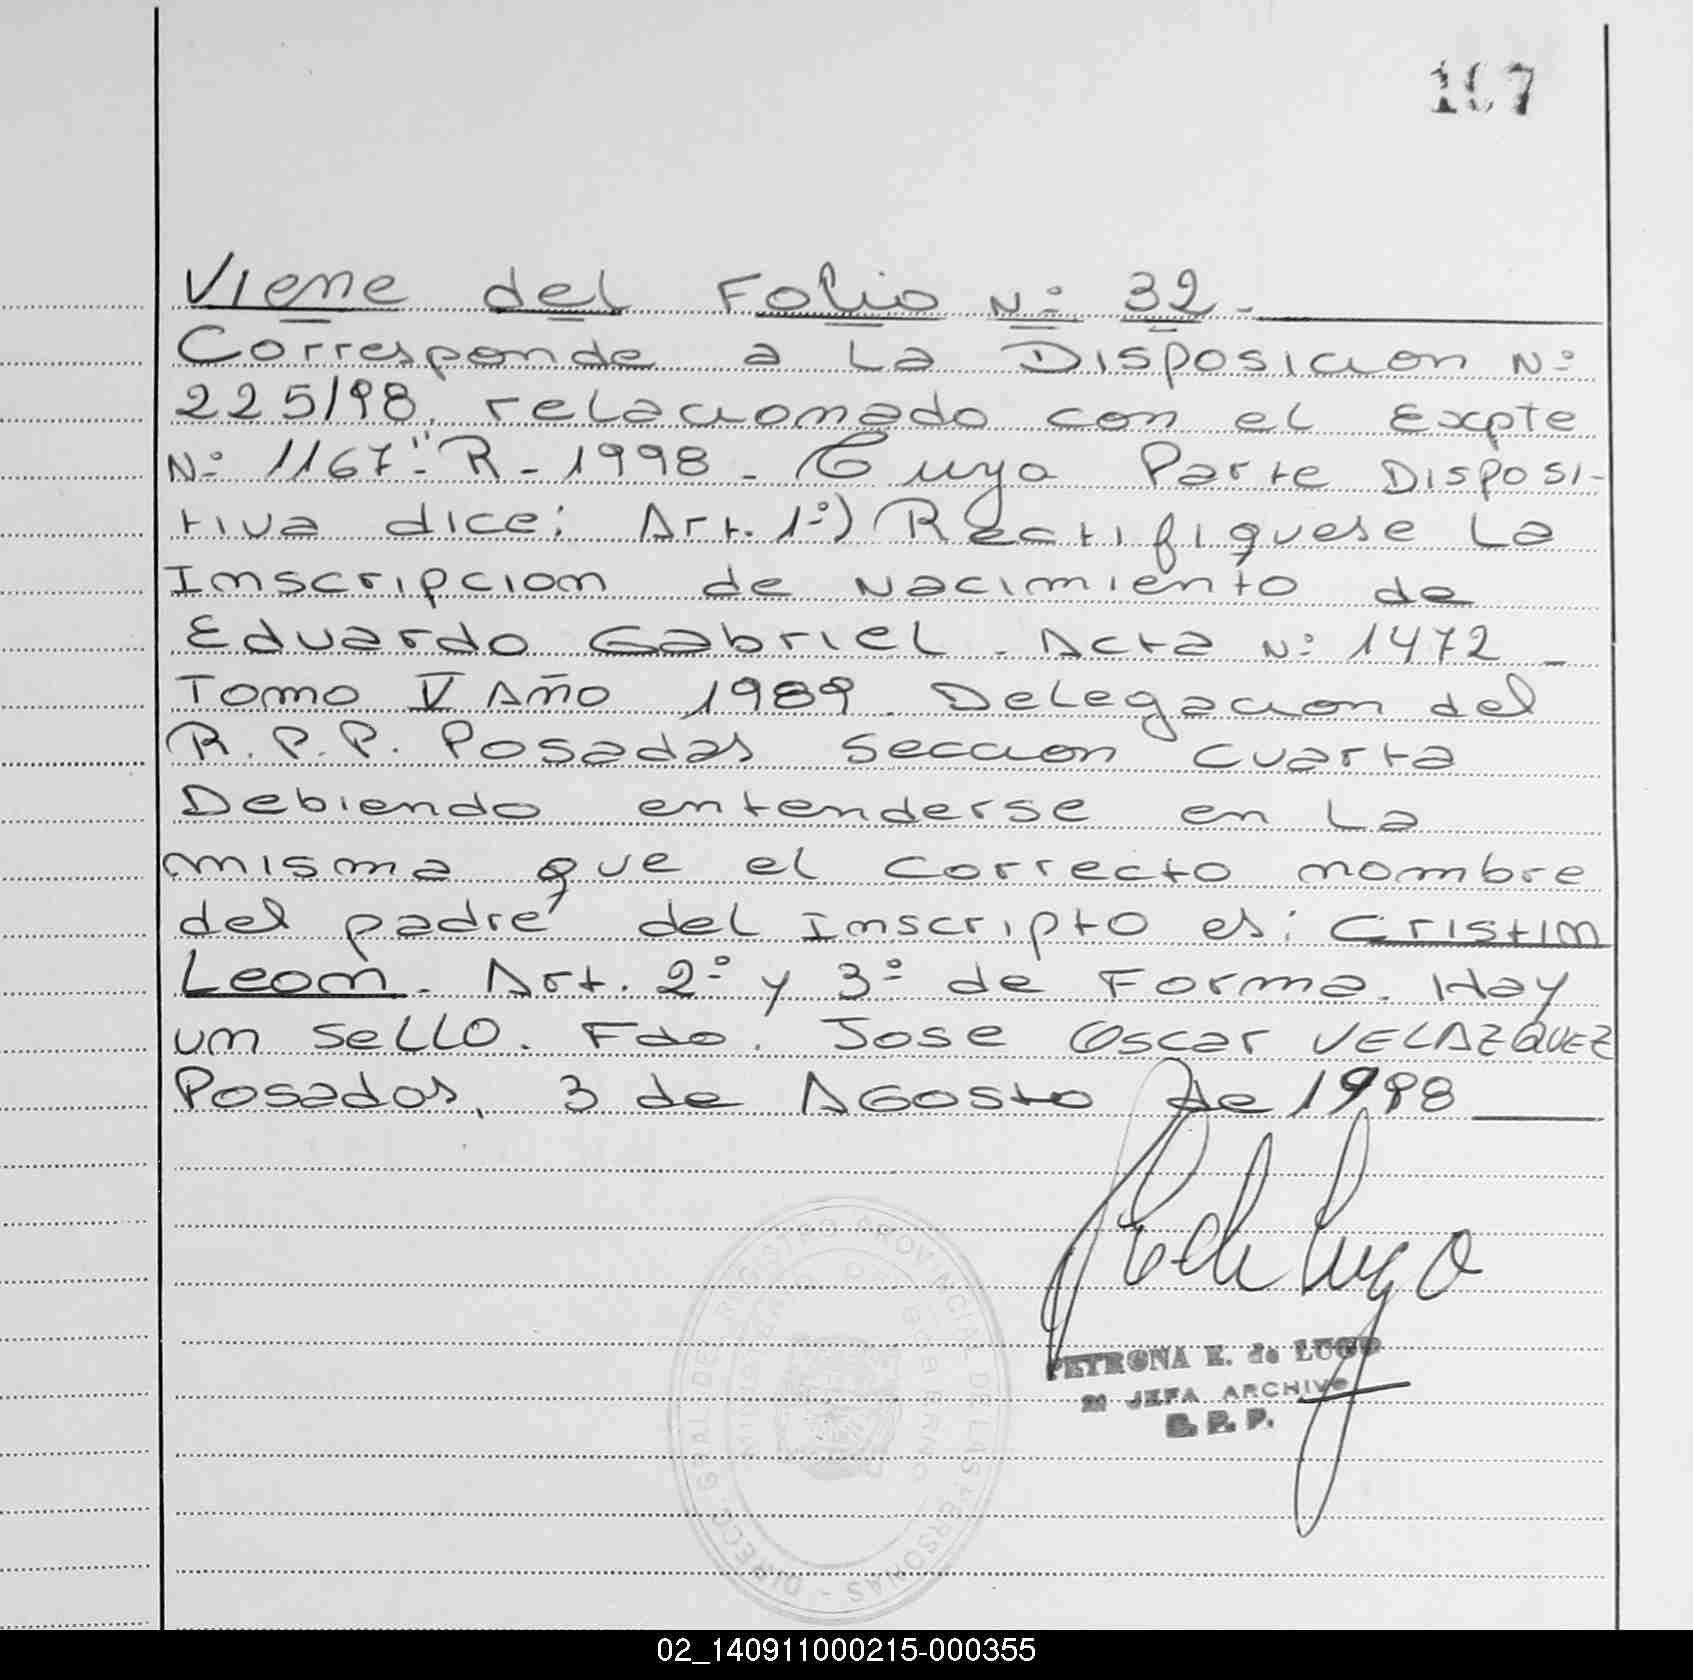 107
Viene del Folio Nº 32.-
Corresponde a La Disposicion Nº
225/98. relacionado con el Expte
Nº 1167"-R-1998- Cuya Parte Disposi-
tiva dice: Art. 1º) Rectifiquese La
Inscripcion de Nacimiento de
Eduardo Gabriel - Acta Nº 1472 -
Tomo V Año 1989. Delegacion del
R.P.P. Posadas seccion cuarta
Debiendo entenderse en La
misma que el correcto nombre
del padre del Inscripto es: Cristin
Leon. Art. 2º y 3º de Forma. Hay
un seLLO. Fdo. Jose Oscar VELAZQUEZ
Posadas, 3 de AGosto de 1998
PETRONA E. de LUGO
JEFA ARCHIVO
R. P. P.
DIRECC. GRAL DEL REGISTRO PROVINCIAL DE LAS PERSONAS -
GOBIERNO
02_140911000215-000355